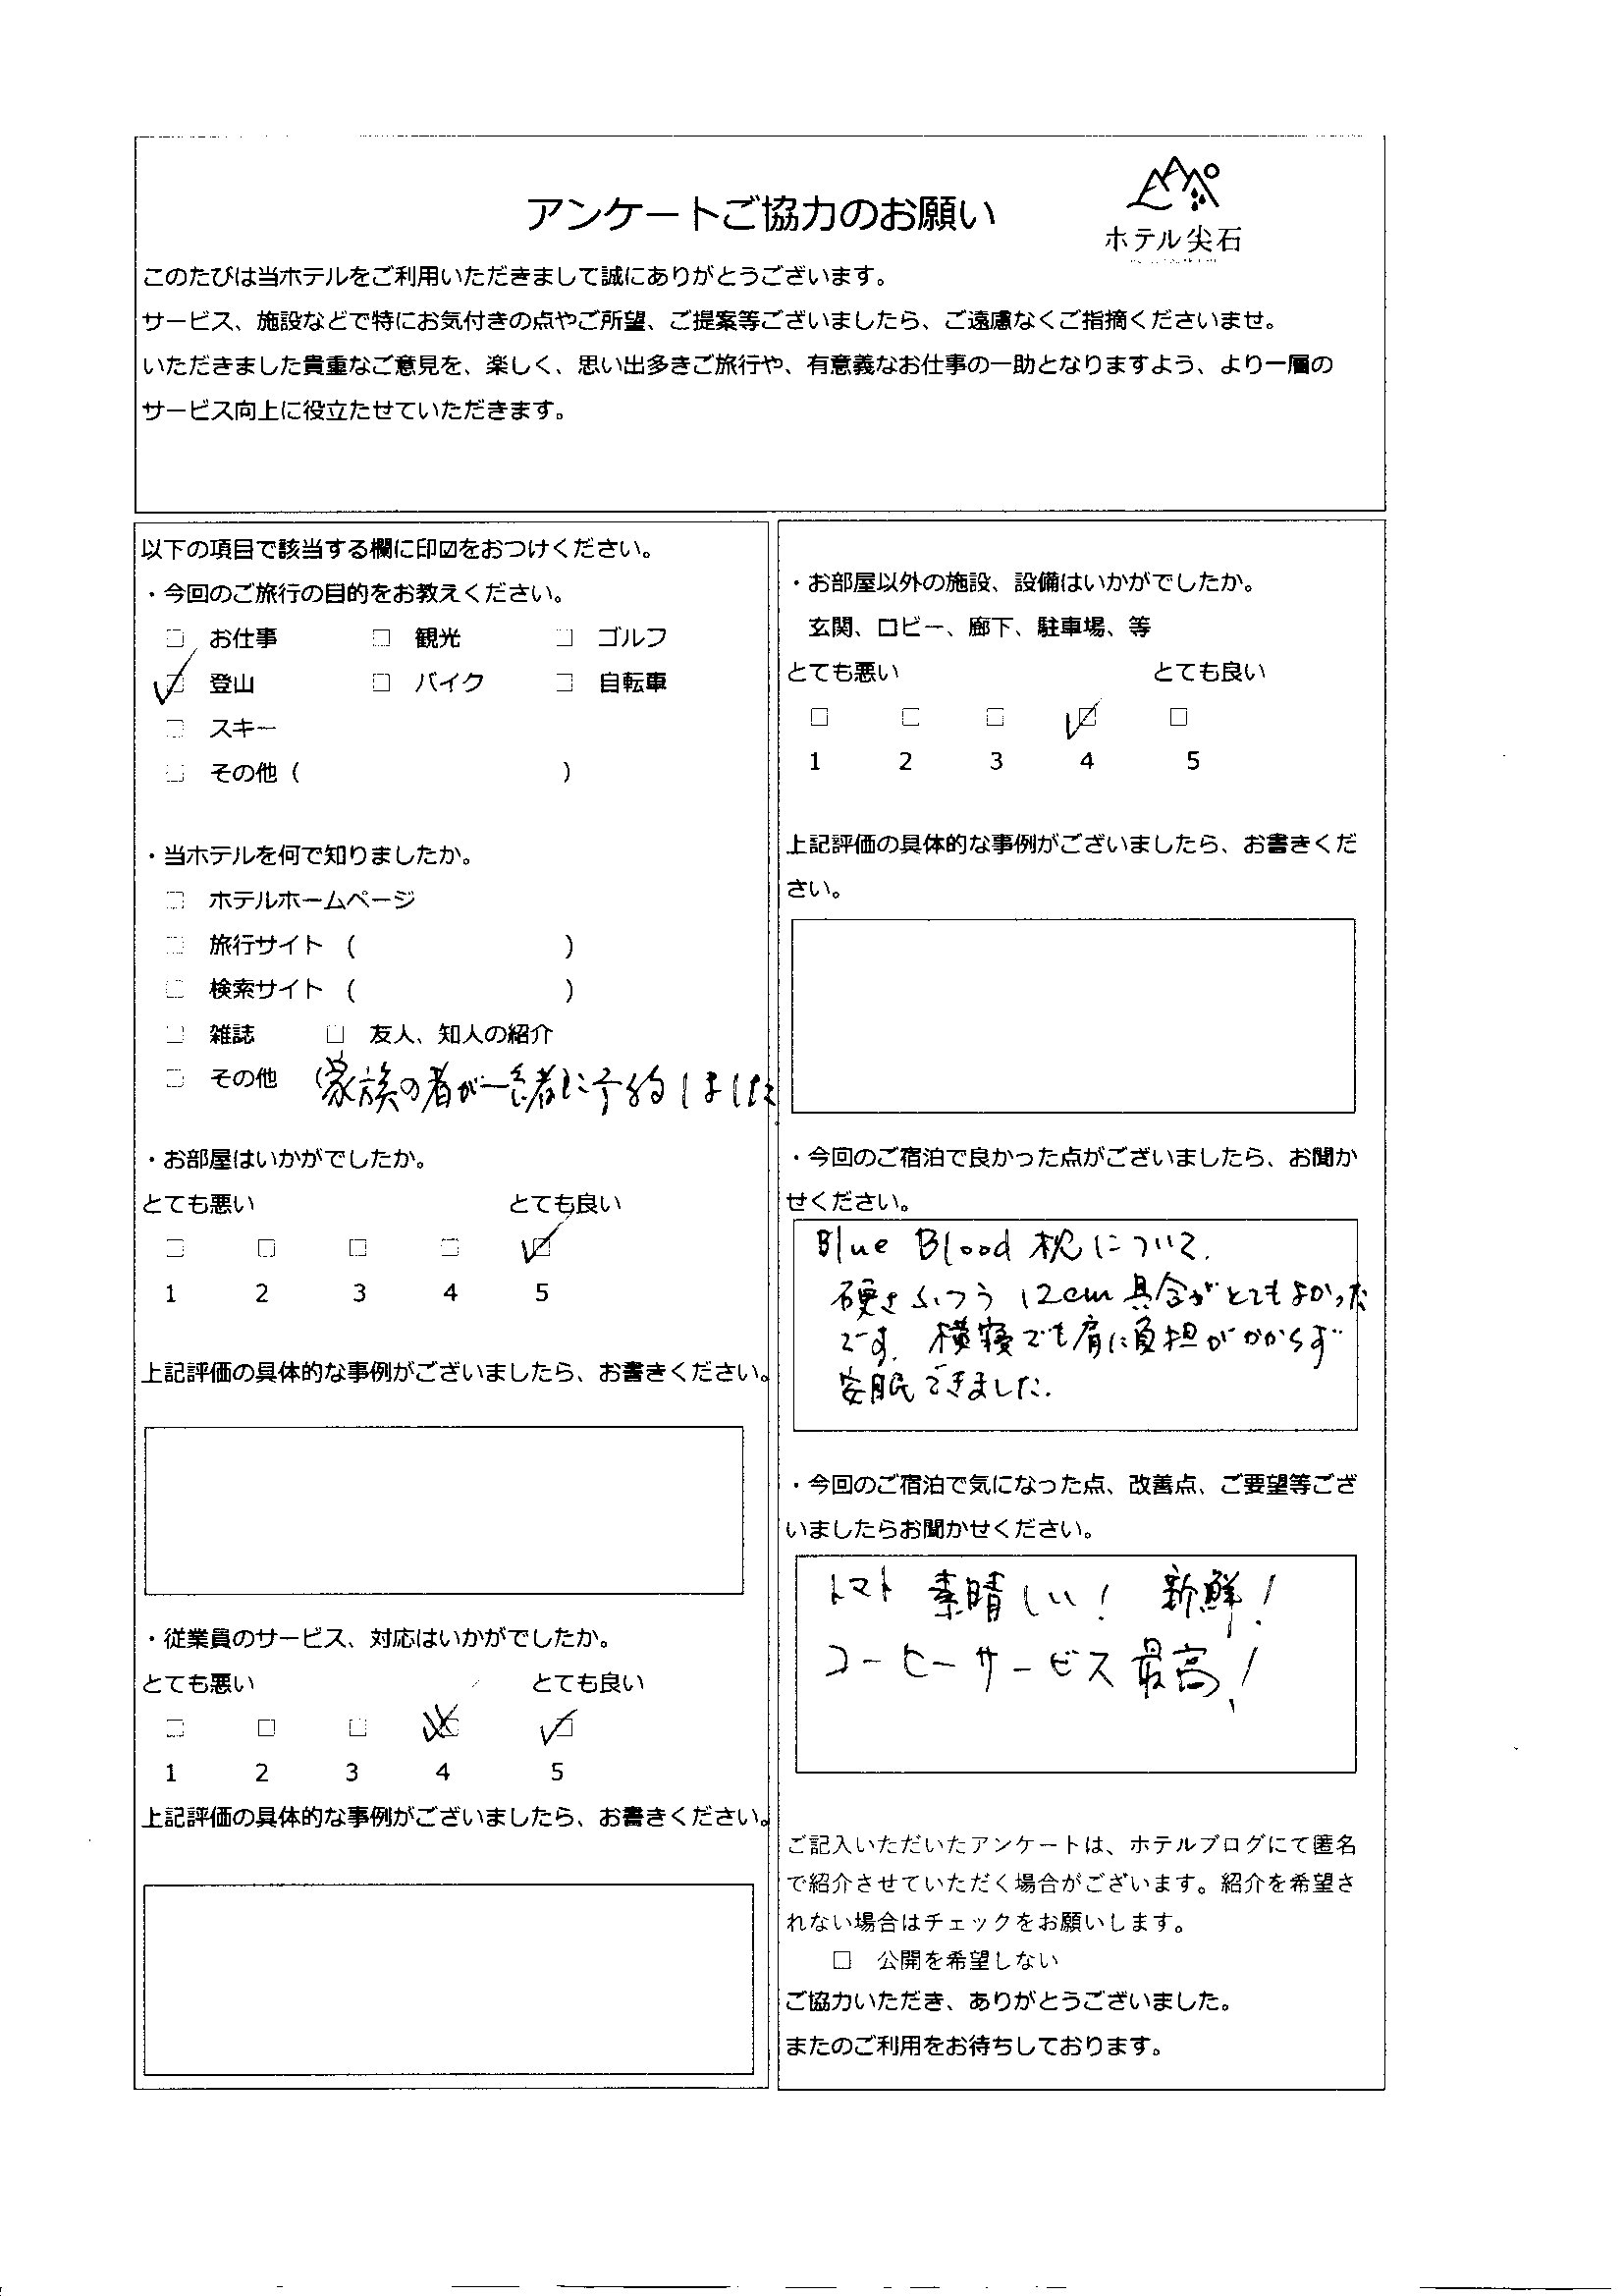 アンケートご協力のお願い
ホテル尖石
このたびは当ホテルをご利用いただきまして誠にありがとうございます。
サービス、施設などで特にお気付きの点やご所望、ご提案等ございましたら、ご遠慮なくご指摘くださいませ。
いただきました貴重なご意見を、楽しく、思い出多きご旅行や、有意義なお仕事の一助となりますよう、より一層の
サービス向上に役立たせていただきます。
以下の項目で該当する欄に印☑をおつけください。
・今回のご旅行の目的をお教えください。
□ お仕事 □ 観光 □ ゴルフ
☑ 登山 □ バイク □ 自転車
□ スキー
□ その他 ( )
・当ホテルを何で知りましたか。
□ ホテルホームページ
□ 旅行サイト ( )
□ 検索サイト ( )
□ 雑誌 □ 友人、知人の紹介
□ その他 (家族の者が一緒に予約しました.
・お部屋はいかがでしたか。
とても悪い とても良い
□ □ □ □ ☑
1 2 3 4 5
上記評価の具体的な事例がございましたら、お書きください。
・従業員のサービス、対応はいかがでしたか。
とても悪い とても良い
□ □ □ □ ☑
1 2 3 4 5
上記評価の具体的な事例がございましたら、お書きください。
・お部屋以外の施設、設備はいかがでしたか。
玄関、ロビー、廊下、駐車場、等
とても悪い とても良い
□ □ □ ☑ □
1 2 3 4 5
上記評価の具体的な事例がございましたら、お書きくだ
さい。
・今回のご宿泊で良かった点がございましたら、お聞か
せください。
Blue Blood 枕について.
硬さふつう 12cm 具合がとてもよかった
です. 横寝でも肩に負担がかからず
安眠できました.
・今回のご宿泊で気になった点、改善点、ご要望等ござ
いましたらお聞かせください。
トマト 素晴しい! 新鮮!
コーヒーサービス最高!
ご記入いただいたアンケートは、ホテルブログにて匿名
で紹介させていただく場合がございます。紹介を希望さ
れない場合はチェックをお願いします。
□ 公開を希望しない
ご協力いただき、ありがとうございました。
またのご利用をお待ちしております。